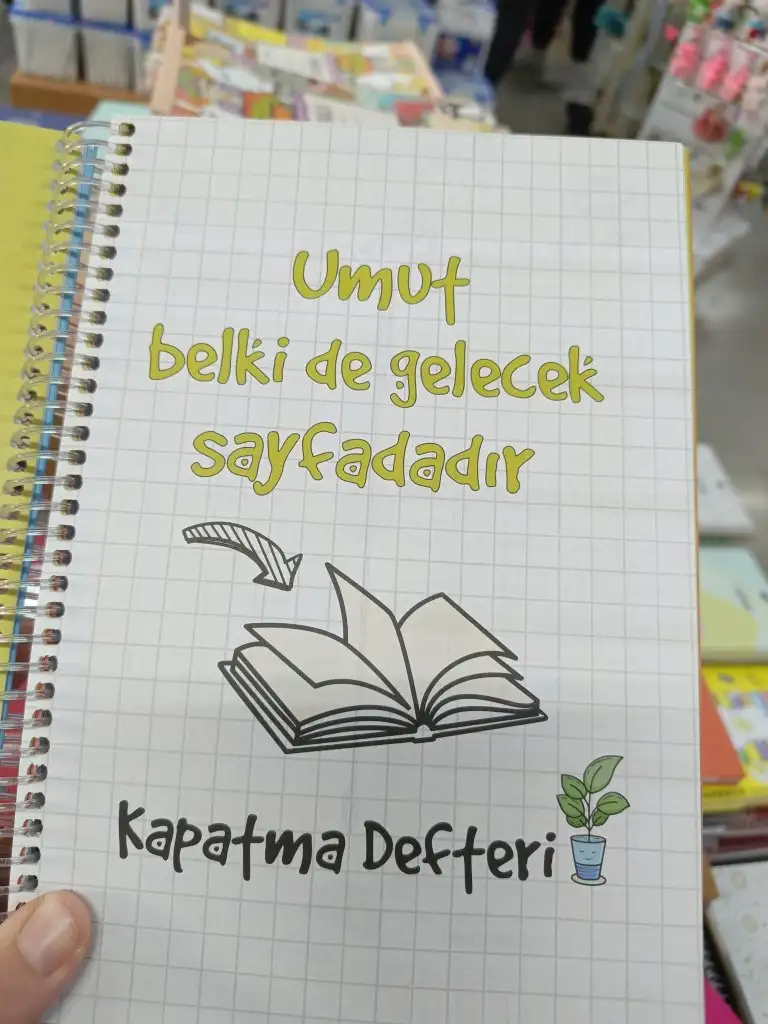 Umut
belki de gelecek
sayfadadır
Kapatma Defteri